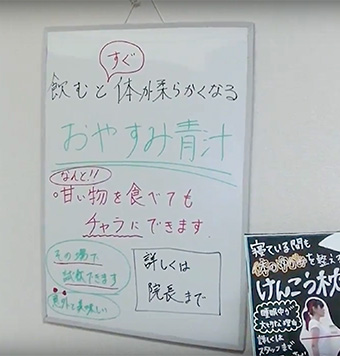 すぐ
飲むと体が柔らかくなる
おやすみ青汁
なんと!!
・甘い物を食べても
チャラにできます
その場で
試飲できます
意外と美味しい
詳しくは
院長まで
寝ている間も
体の
を整える
けんこう枕
睡眠中の
大きな理由
詳しくは
スタッフまで